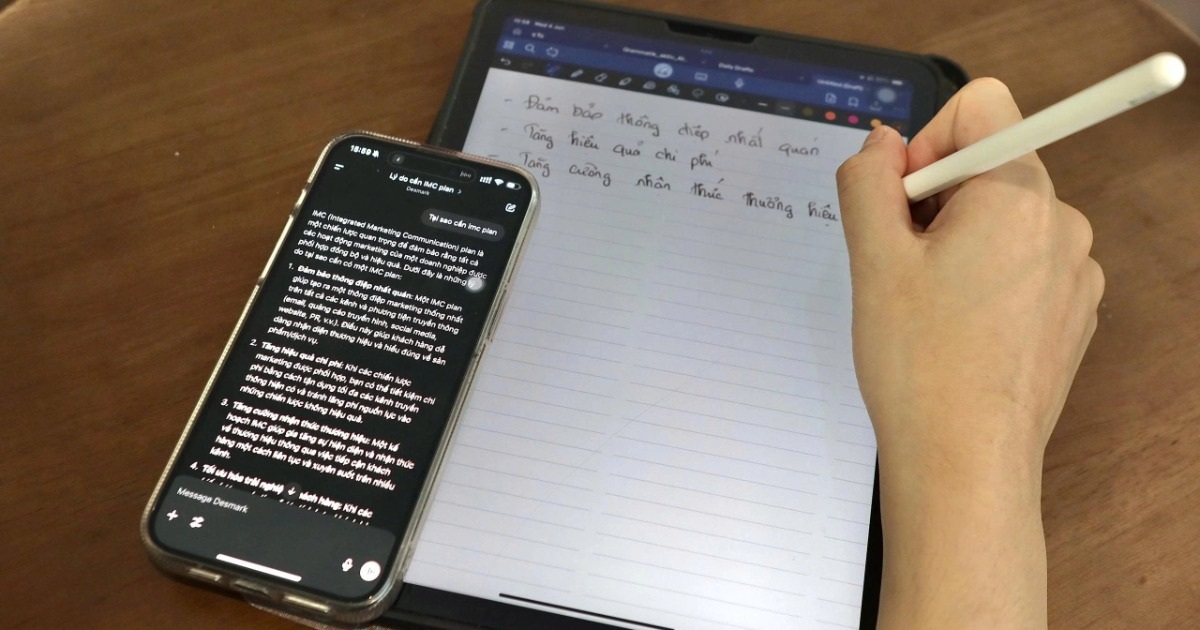 15:59
Lý do cần IMC plan >
Desmark
Tại sao cần imc plan
IMC (Integrated Marketing Communication) plan là
một chiến lược quan trọng để đảm bảo rằng tất cả
các hoạt động marketing của một doanh nghiệp được
phối hợp đồng bộ và hiệu quả. Dưới đây là những
do tại sao cần có một IMC plan:
1. Đảm bảo thông điệp nhất quán: Một IMC plan
giúp tạo ra một thông điệp marketing thống nhất
trên tất cả các kênh và phương tiện truyền thông
(email, quảng cáo truyền hình, social media,
website, PR, v.v.). Điều này giúp khách hàng dễ
dàng nhận diện thương hiệu và hiểu đúng về sản
phẩm/dịch vụ.
2. Tăng hiệu quả chi phí: Khi các chiến lược
marketing được phối hợp, bạn có thể tiết kiệm chi
phí bằng cách tận dụng tối đa các kênh truyền
thông hiện có và tránh lãng phí nguồn lực vào
những chiến lược không hiệu quả.
3. Tăng cường nhận thức thương hiệu: Một kế
hoạch IMC giúp gia tăng sự hiện diện và nhận thức
về thương hiệu thông qua việc tiếp cận khách
hàng một cách liên tục và xuyên suốt trên nhiều
kênh.
4. Tối ưu hóa trải nghiệ hàng: Khi các
Message Desmark
Wed 4 Jun
Daily Drafts
Untitled (Draft)
- Đảm bảo thông điệp nhất quán
- Tăng hiệu quả chi phí
- Tăng cường nhận thức thương hiệu